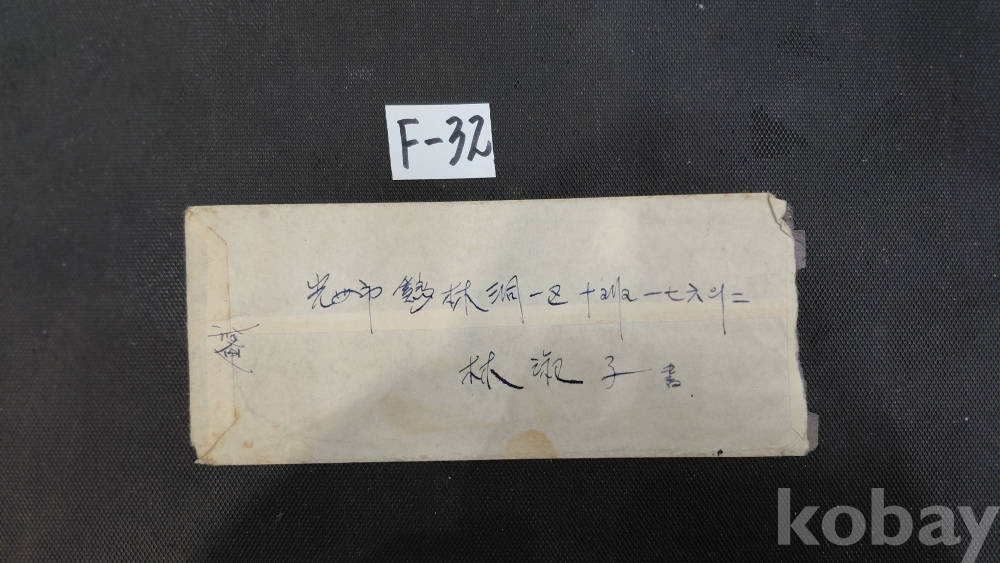 F-32
光州市 鶏林洞 一区 十班 一七六의二
林淑子 書
kobay